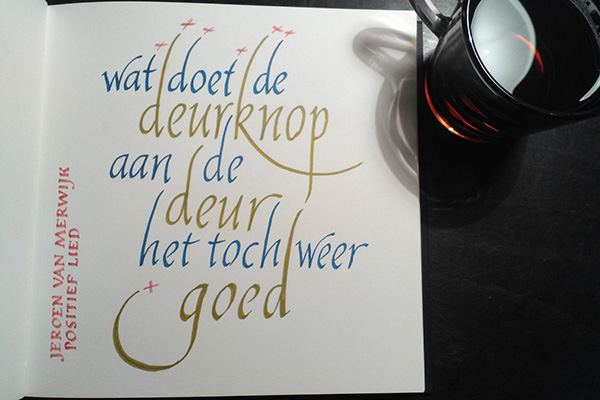 wat doet de
deurknop
aan de
deur
het toch weer
goed
JEROEN VAN MERWIJK
POSITIEF LIED